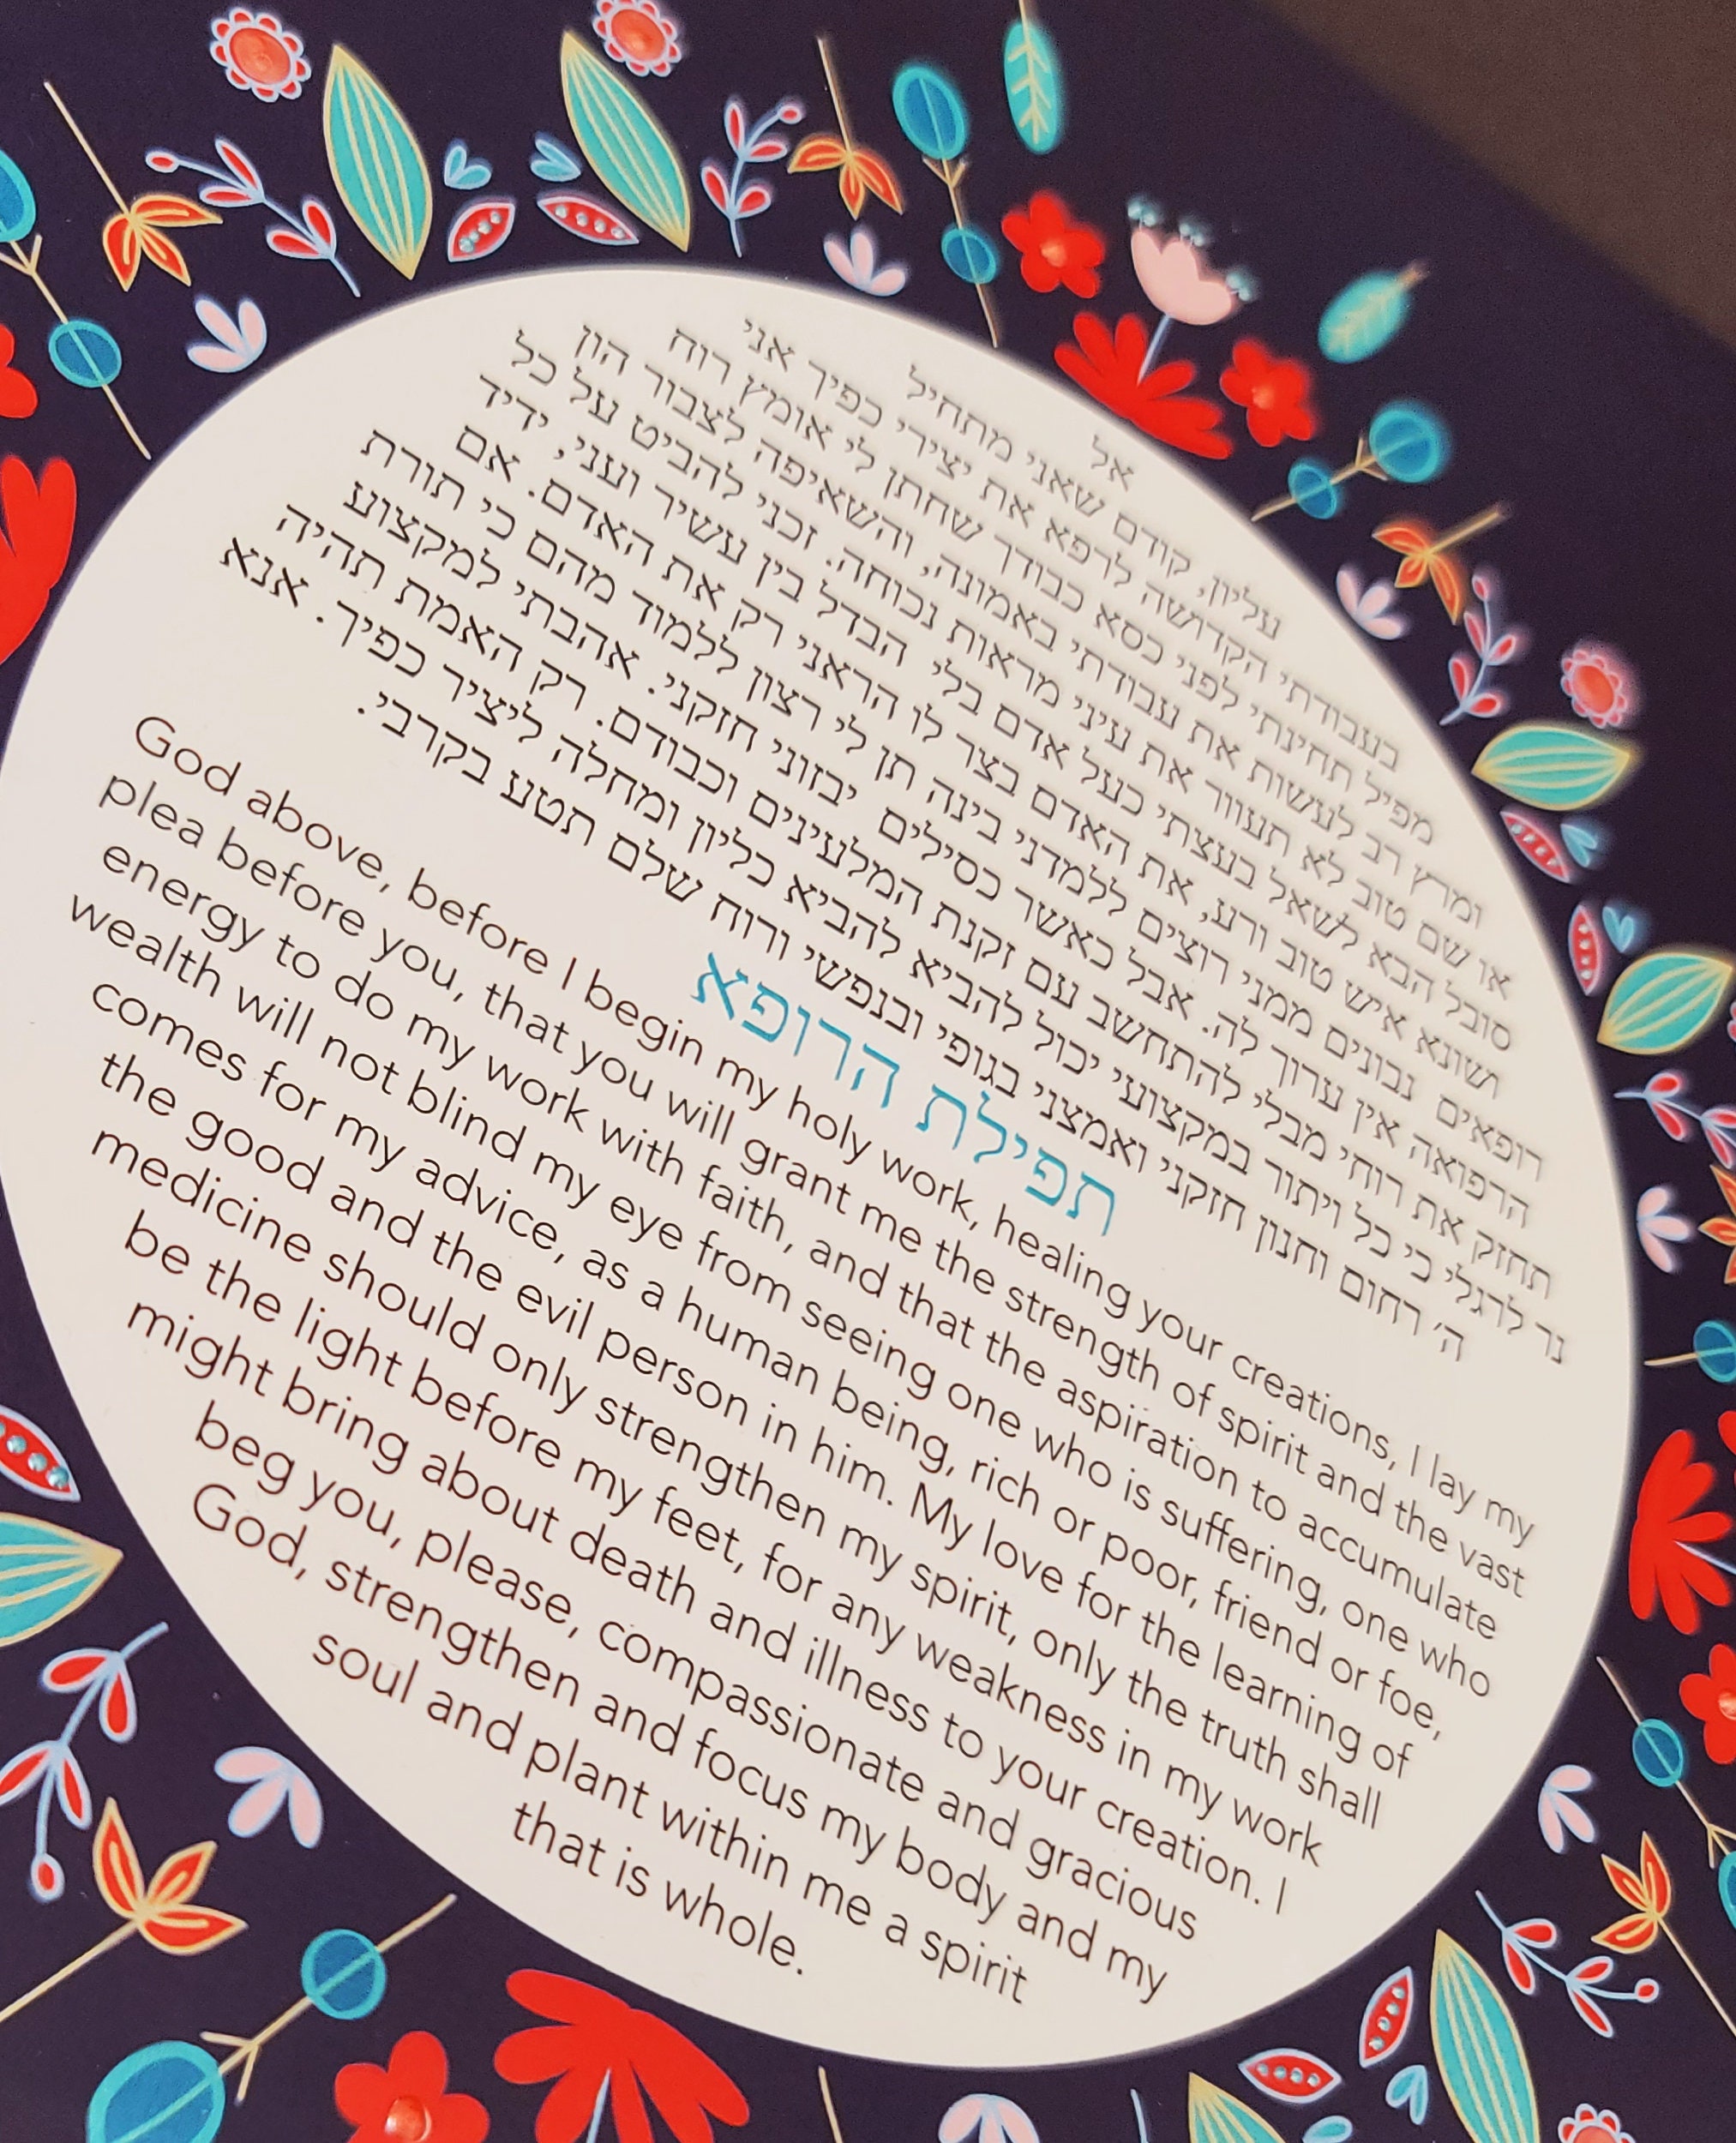 אל
עליון, קודם שאני מתחיל
בעבודתי הקדושה לרפא את יצירי כפיך אני
מפיל תחינתי לפני כסא כבודך שתתן לי אומץ רוח
ומרץ רב לעשות את עבודתי באמונה, והשאיפה לצבור הון
או שם טוב לא תעוור את עיני מראות נכוחה. זכני להביט על כל
סובל הבא לשאל בעצתי כעל אדם בלי הבדל בין עשיר ועני, ידיד
ושונא איש טוב ורע, את האדם בצר לו הראני רק את האדם. אם
רופאים נבונים ממני רוצים ללמדני בינה תן לי רצון ללמוד מהם כי תורת
הרפואה אין ערוך לה. אבל כאשר כסילים יבזוני חזקני. אהבתי למקצוע
תחזק את רוחי מבלי להתחשב עם זקנת המלעינים וכבודם. רק האמת תהיה
נר לרגלי כי כל ויתור במקצועי יכול להביא להביא כליון ומחלה ליציר כפיך. אנא
ה׳ רחום וחנון חזקני ואמצני בגופי ובנפשי ורוח שלם תטע בקרבי.
תפילת הרופא
God above, before I begin my holy work, healing your creations, I lay my
plea before you, that you will grant me the strength of spirit and the vast
energy to do my work with faith, and that the aspiration to accumulate
wealth will not blind my eye from seeing one who is suffering, one who
comes for my advice, as a human being, rich or poor, friend or foe,
the good and the evil person in him. My love for the learning of
medicine should only strengthen my spirit, only the truth shall
be the light before my feet, for any weakness in my work
might bring about death and illness to your creation. I
beg you, please, compassionate and gracious
God, strengthen and focus my body and my
soul and plant within me a spirit
that is whole.